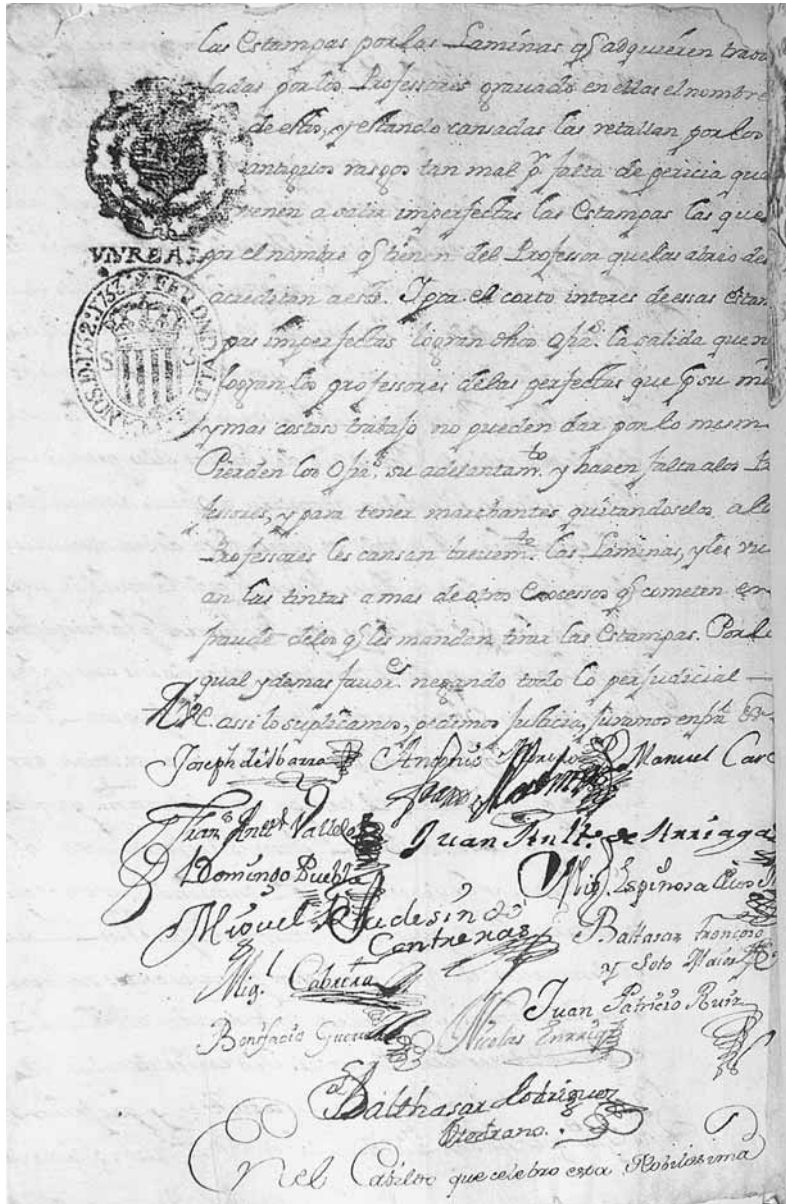 las Estampas por las Laminas q̃ adquieren traba
jadas por los Professores gravado en ellas el nombre
de estos, y estando cansadas las retallan por los
antiguos rasgos tan mal p̃ falta de pericia que
vienen a salir imperfectas las Estampas las que
por el nombre q̃ tienen del Professor que las abrio des
acreditan a este. Y por el corto interes de essas Estam
pas imperfectas logran dhos Ofiz.s la salida que n
logran los professores de las perfectas que p̃ su m
y mas costoso trabajo no pueden dar por lo mesm
Pierden los Ofiz.s su adelantam.to y hacen falta a los
fessores, y para tener marchantes quitandoselos a lo
Professores les cansan brevem.te las Laminas, y les vic
an las tintas a mas de otros excessos q̃ cometen en
fraude de los q̃ les mandan tirar las Estampas. Por lo
qual y demas favor.es negando todo lo perjudicial —
assi lo suplicamos, pedimos Justicia, juramos en
VN REAL
Joseph de Ybarra Antonio Manuel
Fran.co Ant.o Vallejo Juan Ant.o de Arriaga
Domingo Puebla Mig.l Espinosa
Miguel Rudesindo
Contreras Baltasar Troncoso
y Soto Maior
Mig.l Cabrera
Juan Patricio Ruiz
Bonifacio Nicolas Enrriq
Balthasar Rodriguez
Medrano.
En el Cabildo que celebro esta Nobilissima